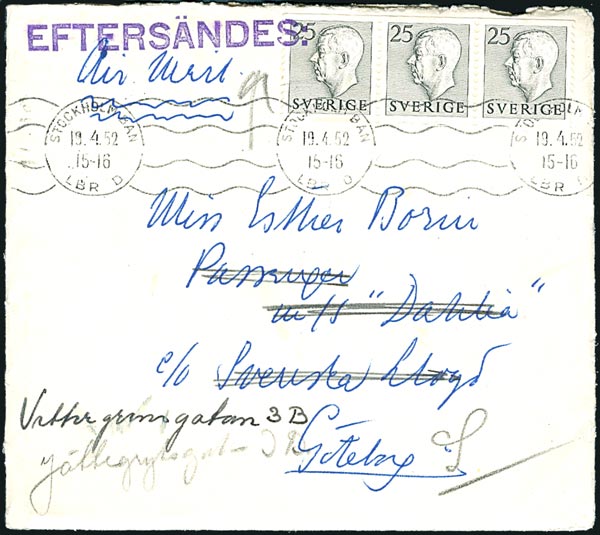 EFTERSÄNDES.
Air Mail.
25 25 25
SVERIGE SVERIGE SVERIGE
STOCKHOLM BAN STOCKHOLM BAN STOCKHOLM BAN
19.4.52 19.4.52 19.4.52
15-16 15-16 15-16
LBR D LBR D LBR D
Miss Esther Borin
Passenger
m/s "Dahlia"
c/o Svenska Lloyd
gatan 3B
Göteborg